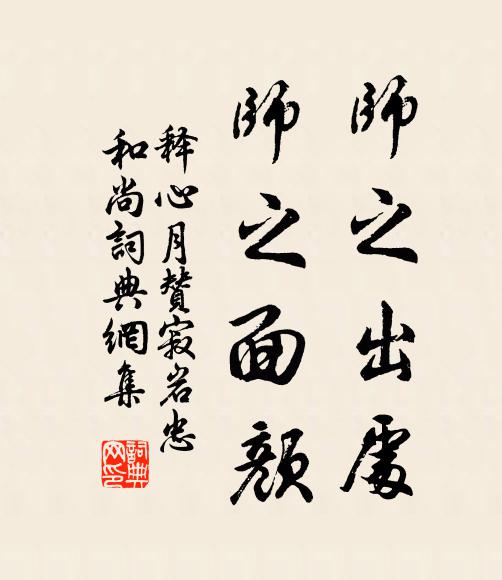 師之出處
師之面顏
释心月贊寂岩忠
和尚詞典網集
詞典网印